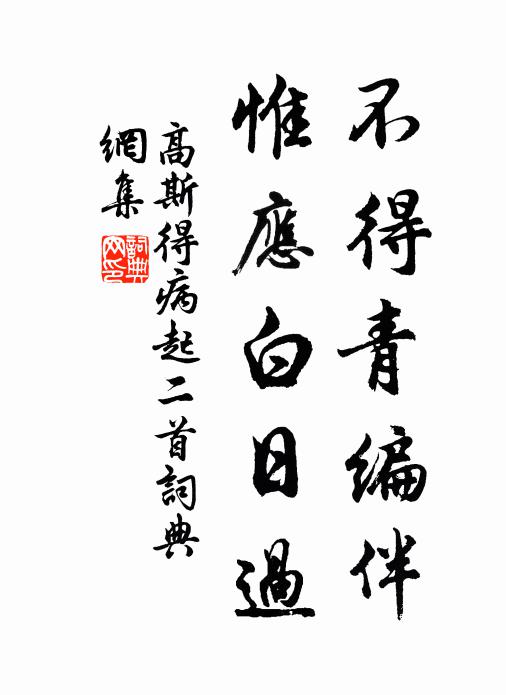 不得青編伴
惟應白日過
高斯得病起二首詞典
網集
詞典網印